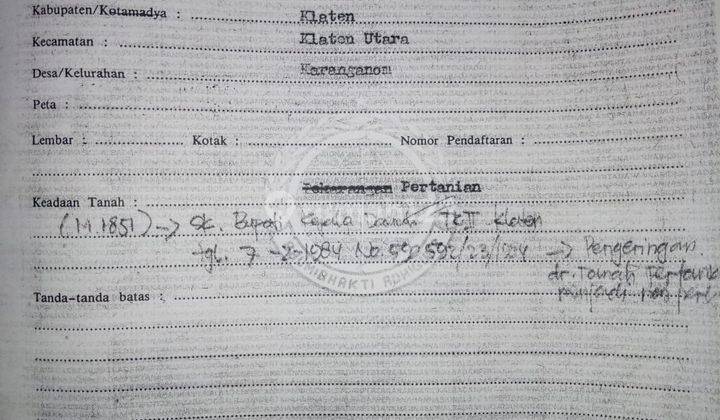 Kabupaten/Kotamadya : Klaten
Kecamatan : Klaten Utara
Desa/Kelurahan : Karanganom
Peta :
Lembar : Kotak : Nomor Pendaftaran :
Pekarangan Pertanian
Keadaan Tanah :
(M.1851) → SK. Bupati Kepala Daerah TKII Klaten
tgl. 7 -2-1984 No. → Pengeringan
dr. Tanah
menjadi non
Tanda-tanda batas :
BHAKTI